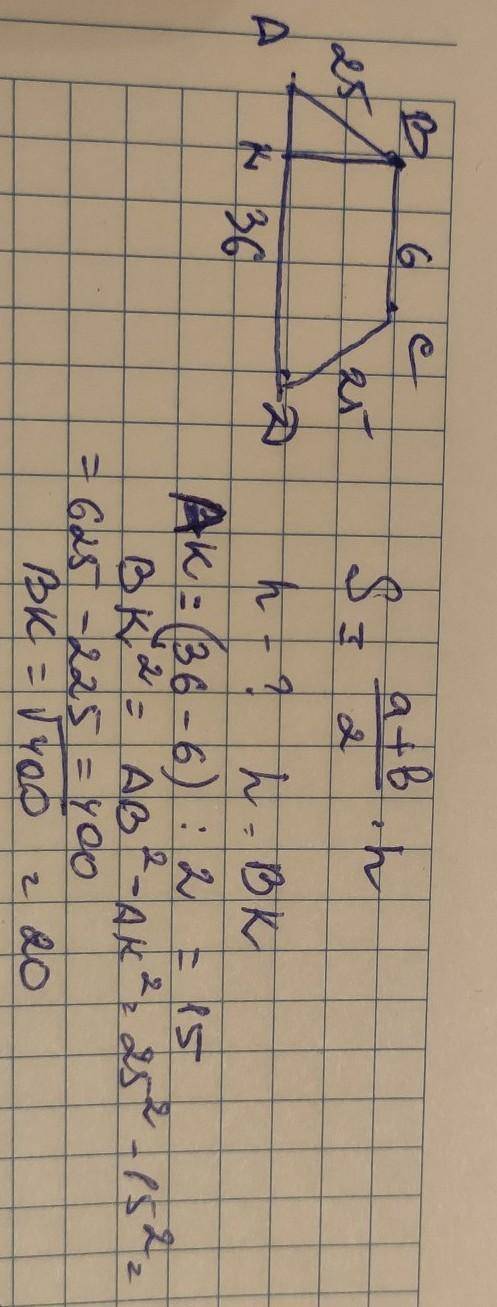 B 6 C
25 25
A K 36 D
S = a+b/2 · h
h - ? h = BK
AK = (36 - 6) : 2 = 15
BK² = AB² - AK² = 25² - 15² =
= 625 - 225 = 400
BK = √400 = 20